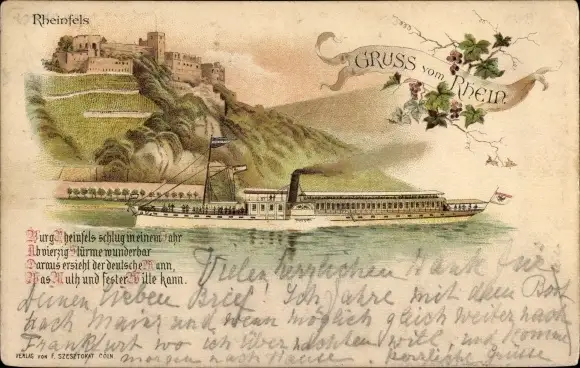 Rheinfels
GRUSS vom Rhein.
Burg Rheinfels schlug in einem Jahr
Ab vierzig Stürme wunderbar
Daraus ersieht der deutsche Mann,
Was Muth und fester Wille kann.
Vielen herzlichen Dank für
Deinen lieben Brief! Ich fahre mit dem Boot
nach Mainz und wenn möglich gleich weiter nach
Frankfurt wo ich übernachten will und komme
morgen nach Hause. herzliche Grüsse
VERLAG VON F. SZESZTOKAT CÖLN